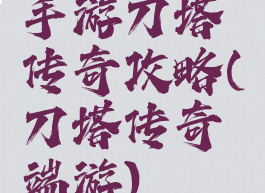 手游刀塔
传奇攻略(
刀塔传奇
端游)